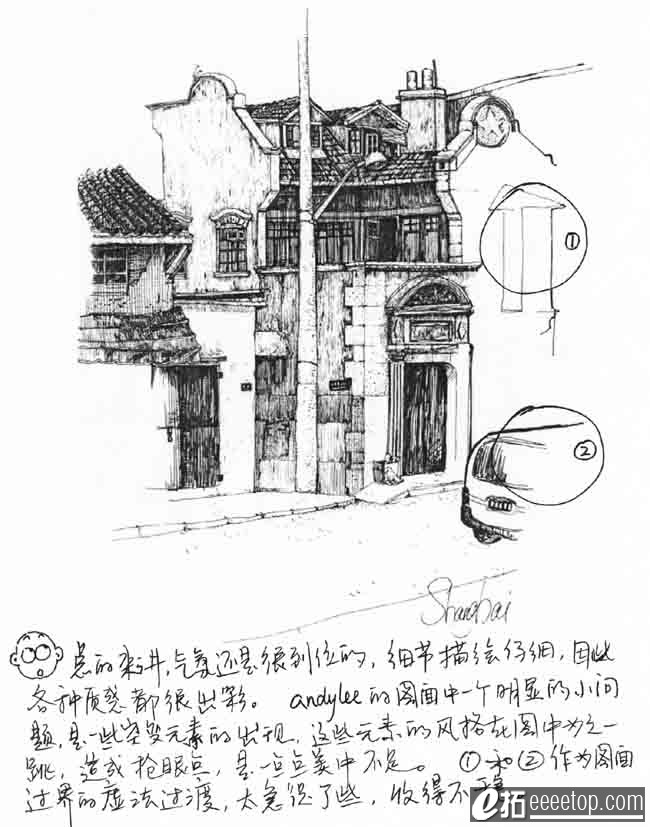 ①
②
Shanghai
总的来讲,气氛还是很到位的,细节描绘仔细,因此
各种质感都很出彩。 andylee的图面中一个明显的小问
题,是一些突变元素的出现,这些元素的风格在图中为之一
跳,造成抢眼点,是一点点美中不足。 ①和②作为图面
过界的虚法过渡,太急促了些,收得不
e拓 eeeetop.com